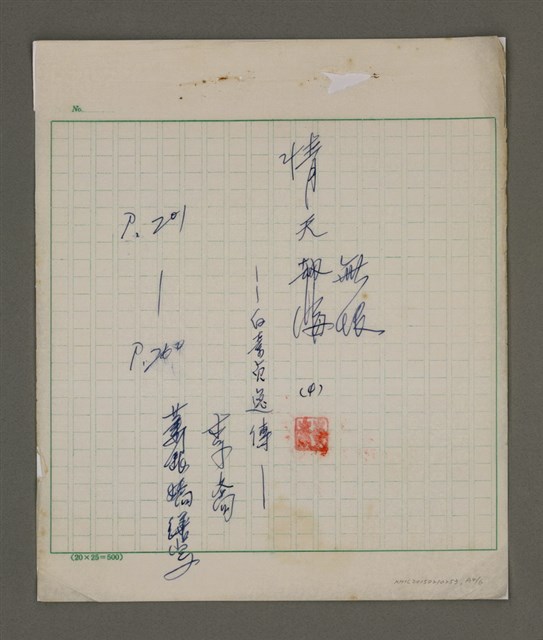 No.
情天無恨
(4)
—白素貞逸傳—
李喬
P.201
—
P.260
蕭銀嬌謄寫
(20×25=500)